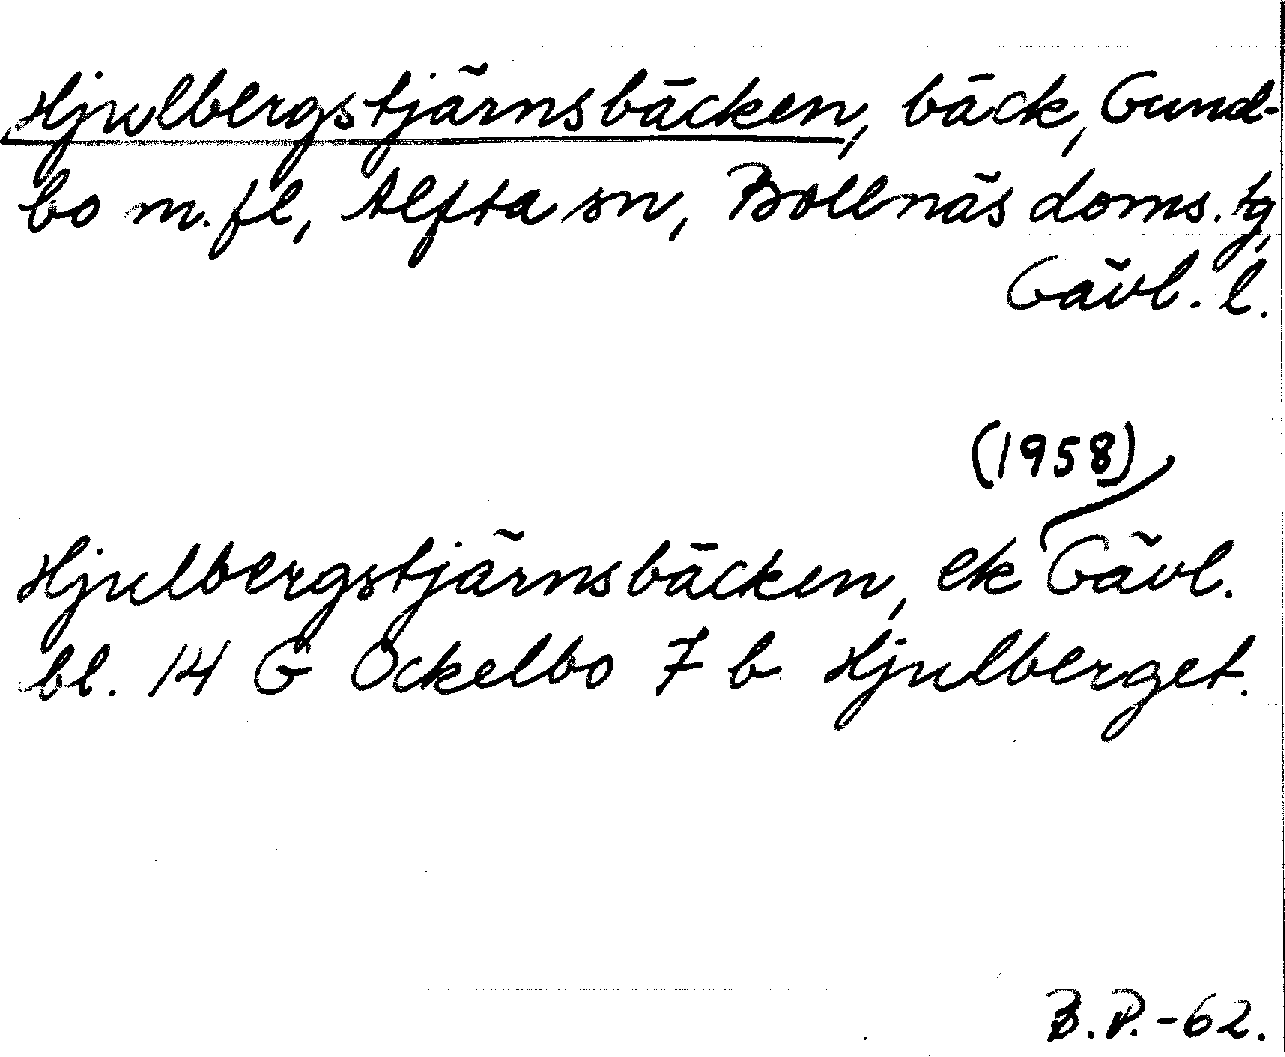 Hjulbergstjärnsbäcken, bäck, Gund-
bo m.fl., Alfta sn, Bollnäs doms. tg,
Gävl. l.
(1958)
Hjulbergstjärnsbäcken, ek Gävl.
bl. 14 G Ockelbo 7 b Hjulberget.
B.P.-62.